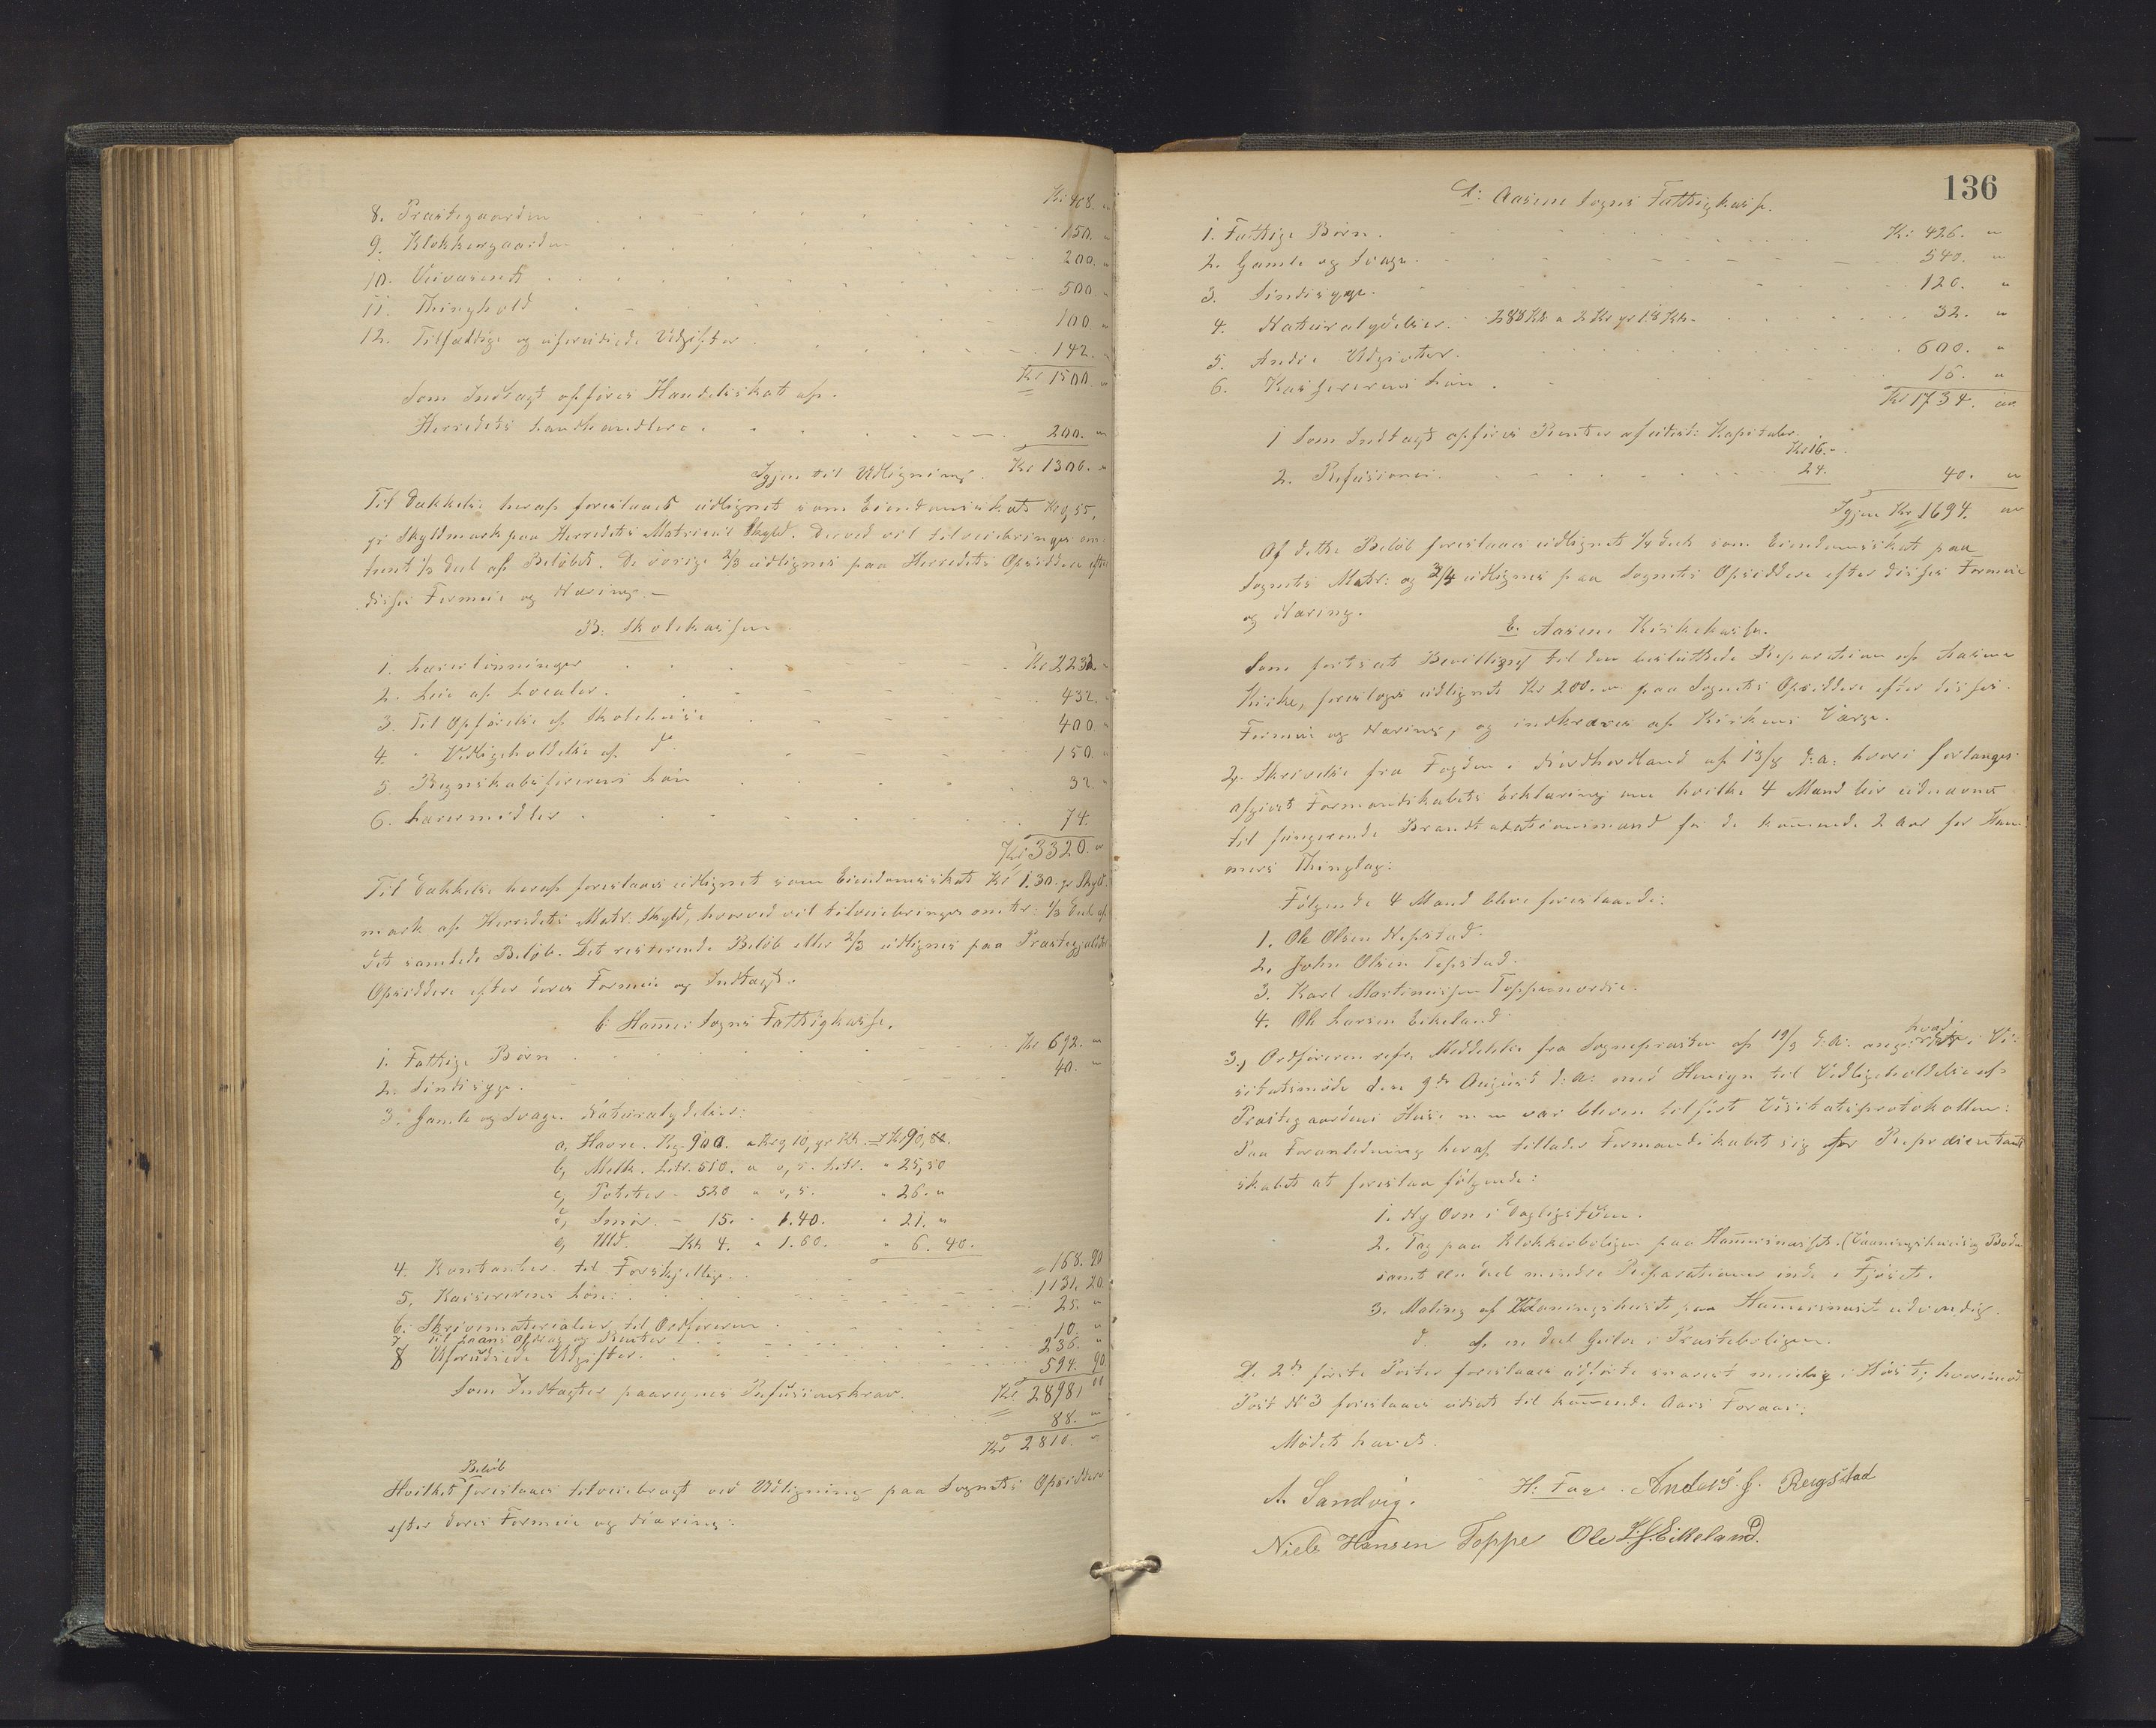 Kr 408. "
8. Præstegaarden 150. "
9. Klokkergaarden 200. "
10. Veivæsenet 500. "
11. Thinghold 100 "
12. Tilfældige og uforudsede Udgifter 142. "
Kr 1500. "
Som Indtægt opføres Handelsskat af
Herredets Landhandlere 200. "
Igjen til Udligning Kr 1300. "
Til Dækkelse heraf foreslaaes udlignet som Eiendomsskat Kr 0,55,
pr Skyldmark paa Herredets Matricul Skyld. Derved vil tilveiebringes om-
trent 1/3 Deel af Beløbet. De øvrige 2/3 udlignes paa Herredets Opsiddere efter
disses Formue og Næring. —
B: Skolekassen.
1. Lærerlønninger Kr 2232. "
2. Leie af Localer. 432. "
3. Til Opførelse af Skolehuse 400. "
4. " Vedligeholdelse af do 150. "
5. Regnskabsførerens Løn 32 "
6. Læremidler 74.
Kr 3320. "
Til Dækkelse heraf foreslaaes udlignet som Eiendomsskat Kr 1.30 pr Skyld-
mark af Herredets Matr. Skyld, hvorved vil tilveiebringes omtr: 1/3 Deel af
det samlede Beløb. Det resterende Beløb eller 2/3 udlignes paa Præstegjældets
Opsiddere efter deres Formue og Indtægt.
C. Hamre Sogns Fattigkasse.
1. Fattige Børn Kr 692. "
2. Sindssyge. 40. "
3. Gamle og Svage. Naturalydelser:
a, Havre. Kg 900. a Kr 0,10, pr Kk. = Kr 90,00.
b, Melk. Litr. 510. a 0,5. Litr. " 25,50
c, Poteter - 520 a 0,5. " 26. "
d, Smør. - 15. " 1.40. " 21. "
e, Uld. Kk 4. " 1.60. " 6. 40.
" 168. 90
4. Kontanter til Forskjellige. 1131. 20
5, Kassererens Løn: 25. "
6. Skrivematerialier til Ordføreren 10. "
7 Til Laans Afdrag og Renter 236. "
8 Uforudsede Udgifter. 594. 90
Kr 2898, 00
Som Indtægter paaregnes Refusionskrav. 88. "
Kr 2810. "
Beløb
Hvilket foreslaaes tilveiebragt ved Udligning paa Sognets Opsiddere
efter deres Formue og Næring.
136
D: Aasene Sogns Fattigkasse.
1. Fattige Børn. Kr 426. "
2. Gamle og Svage. 540. "
3. Sindssyge. 120. "
4. Naturalydelser. 288 Kk a 2 Kr pr 18 Kk. 32. "
5. Andre Udgivter. 600. "
6. Kassererens Løn. 16. "
Kr 1734. "
1 Som Indtægt opføres Renter af udest: Kapitaler.
Kr 16. "
2. Refusioner. 24. 40. "
Igjen Kr 1694. "
Af dette Beløb foreslaaes udlignet 1/4 Deel som Eiendomsskat paa
Sognets Matr: og 3/4 udlignes paa Sognets Opsiddere efter disses Formue
og Næring.
E. Aasene Kirkekasse.
Som fortsat Bevillgng til den besluttede Reparation af Aasene
Kirke, foreslages udlignet Kr 200. " paa Sognets Opsiddere efter disses
Formue og Næring, og indkræves af Kirkens Værge.
2. Skrivelse fra Fogden i Nordhordland af 13/8 d: a: hvori forlanges
afgivet Formandskabets Erklæring om hvilke 4 Mænd bør udnævnes
til fungerende Brandtaxationsmænd for de kommende 2 Aar for Ham-
mers Thinglag:
Følgende 4 Mænd bleve foreslaaede:
1. Ole Olsen Nepstad.
2, John Olsen Tepstad.
3. Karl Martinussen Toppesnordre.
4. Ole Larsen Eikeland
hvad
3, Ordføreren refr, Meddelelse fra Sognepræsten af 19/8 d: A: angaaende i Vi-
sitatsmøde den 9de August d: A: med Hensyn til Vedligeholdelse af
Præstegaardens Huse m. m var bleven tilført Visitatsprotokollen:
Paa Foranledning heraf tillader Formandskabet sig for Repræsentant-
skabet at foreslaa følgende:
1. Ny Ovn i Dagligstuen.
2. Tag paa Klokkerboligen paa Hammersnæsset. (Vaaningshuus og Bod)
samt en deel mindre Reparationer inde i Fjøset.
3. Maling af Vaaningshuset paa Hammersnæset udvendig.
d. af en deel Gulve i Præsteboligen.
De 2de første Poster foreslaaes udførte snarest mulig i Høst, hvorimod
Post No 3 foreslaaes udsat til kommende Aars Foraar.
Mødet hævet.
A. Sandvig. H. Fage. Anders J. Reigstad
Niels Hansen Toppe Ole L. J. Eikeland.